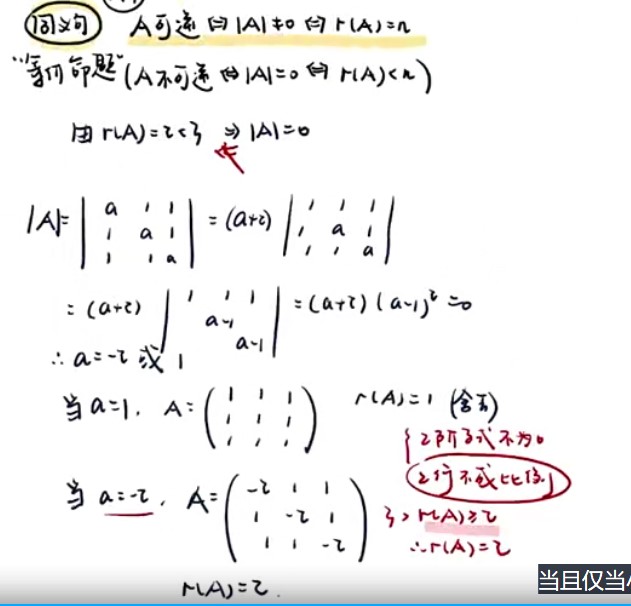 同义句 A可逆⇔|A|≠0⇔r(A)=n
"等价命题"(A不可逆⇔|A|=0⇔r(A)<n)
由r(A)=2<3 ⇒|A|=0
|A|=|a 1 1; 1 a 1; 1 1 a|=(a+2)|1 1 1; 1 a 1; 1 1 a|
=(a+2)|1 1 1; a-1; a-1|=(a+2)(a-1)²=0
∴a=-2或1
当a=1, A=(1 1 1; 1 1 1; 1 1 1) r(A)=1 (舍去)
{2阶子式不为0
2行不成比例
当a=-2, A=(-2 1 1; 1 -2 1; 1 1 -2) 3>r(A)≥2
∴r(A)=2
r(A)=2.
当且仅当